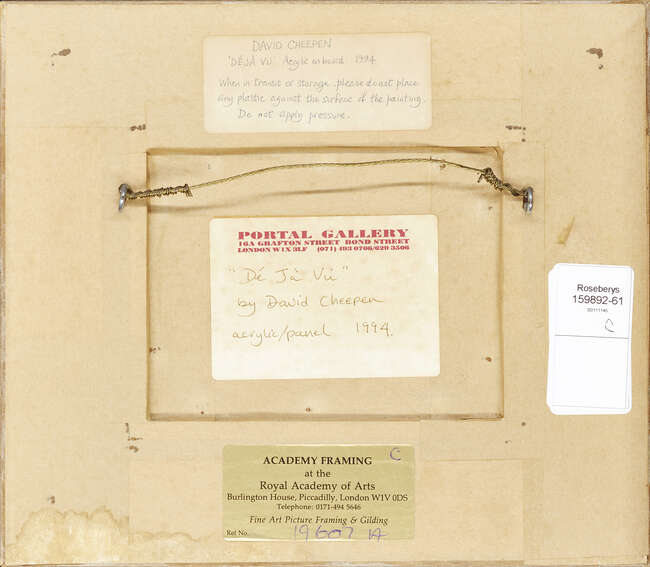 DAVID CHEEPEN
'DÉJÀ VU' Acrylic on board 1994
When in transit or storage please do not place
any plastic against the surface of the painting.
Do not apply pressure.
PORTAL GALLERY
16A GRAFTON STREET BOND STREET
LONDON W1X 3LF (071) 493 0706/629 3506
"Dé Jà Vù"
by David Cheepen
acrylic/panel 1994.
Roseberys
159892-61
C
ACADEMY FRAMING C
at the
Royal Academy of Arts
Burlington House, Piccadilly, London W1V 0DS
Telephone: 0171-494 5646
Fine Art Picture Framing & Gilding
Ref No. 19607 1A